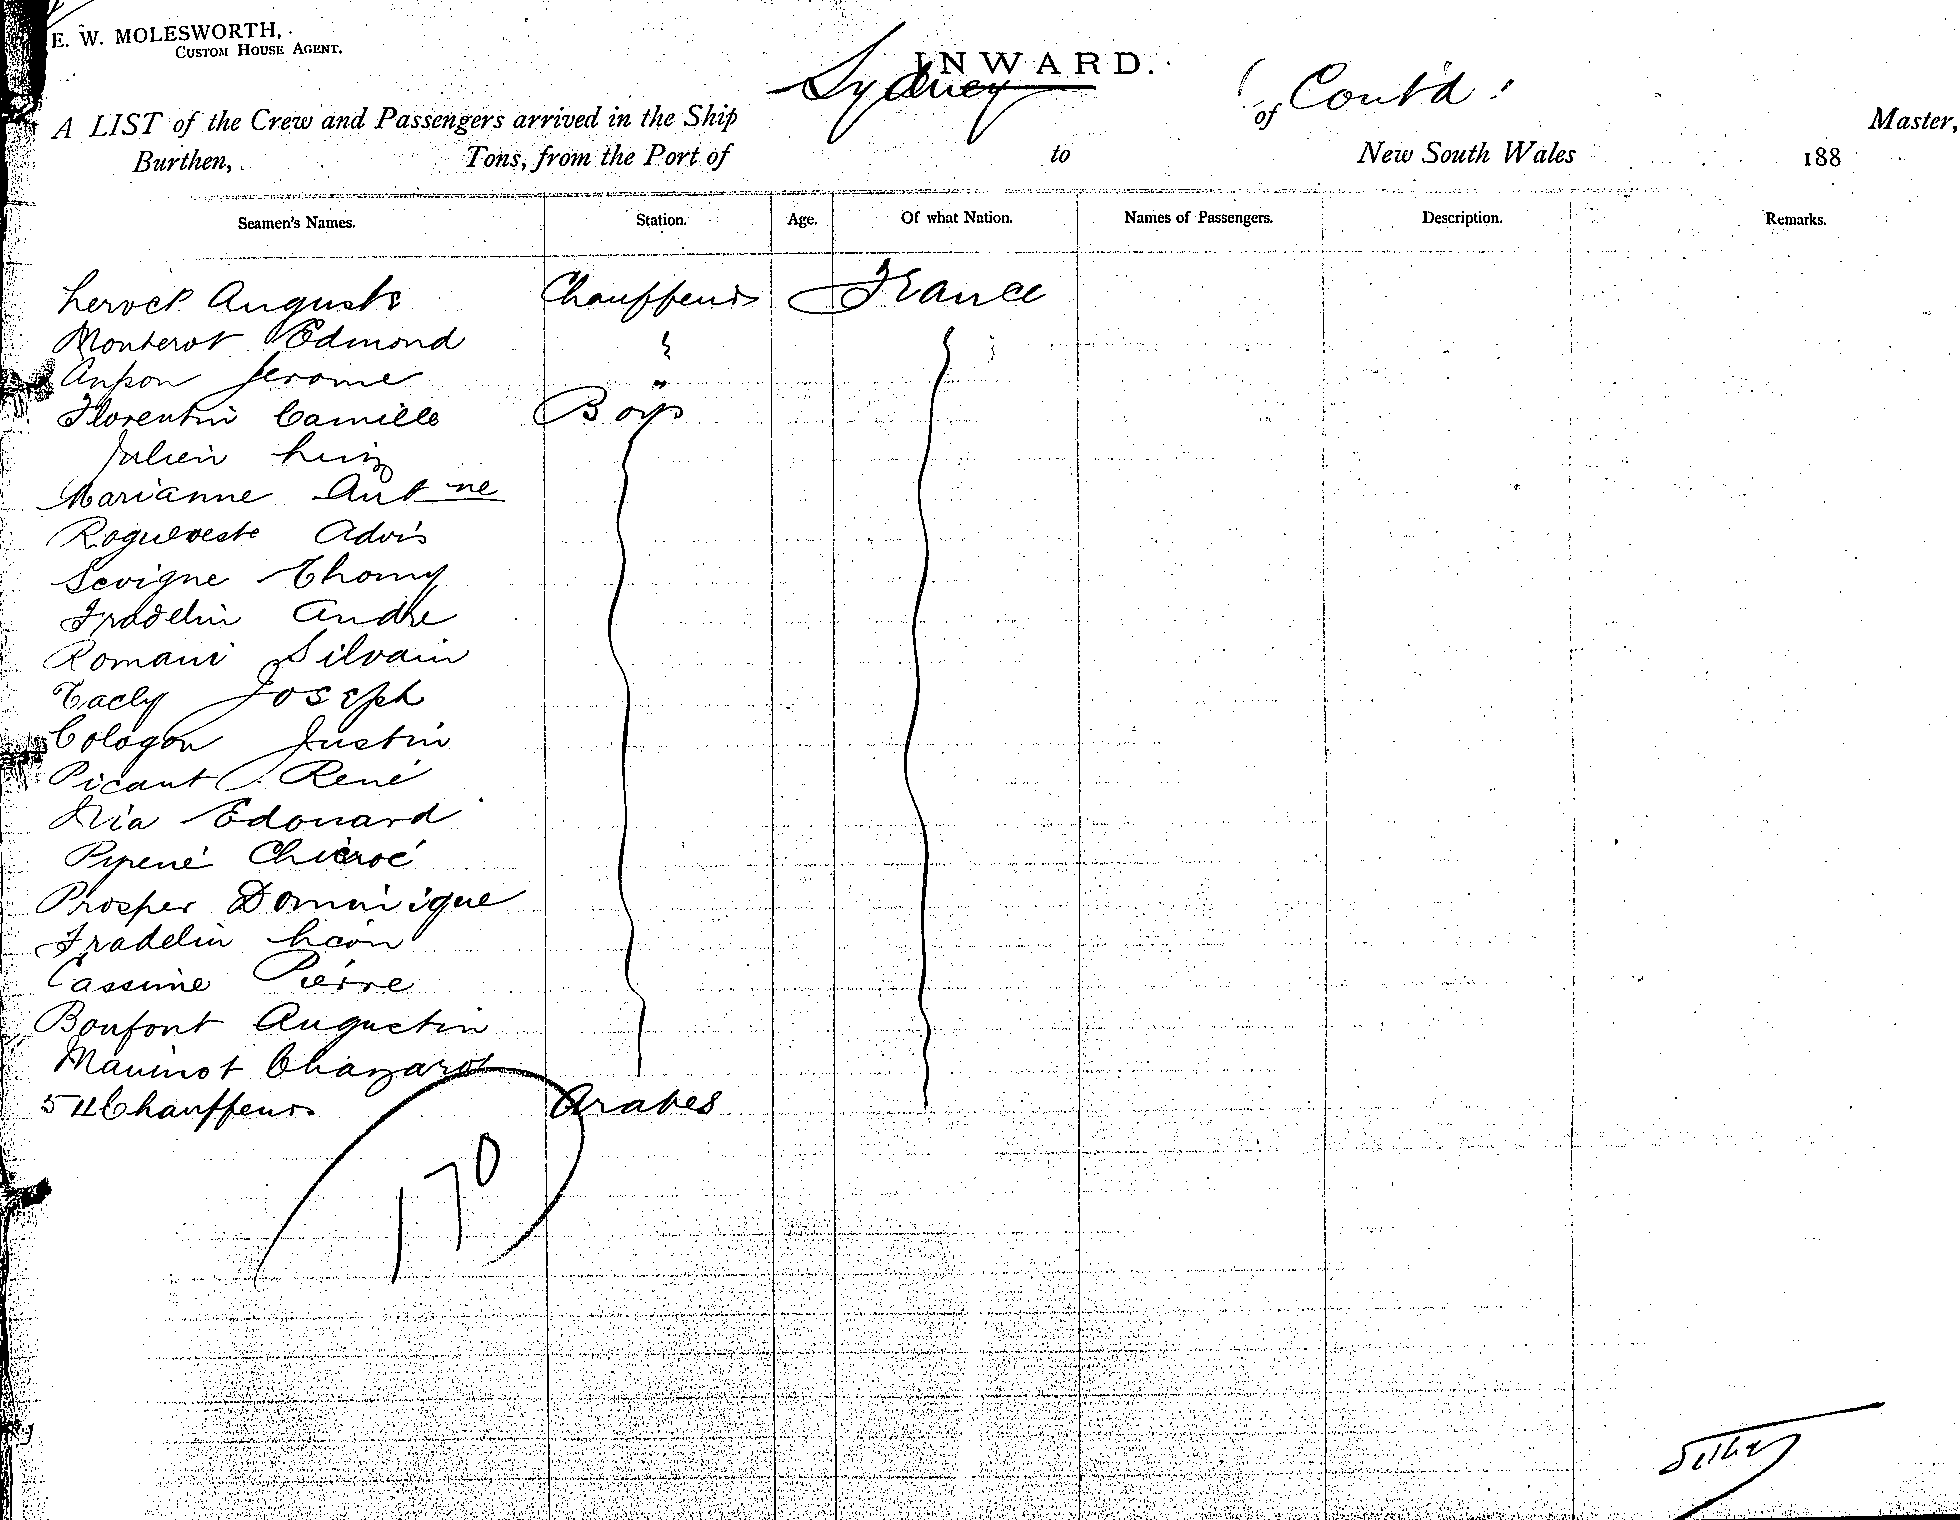 E. W. MOLESWORTH,
CUSTOM HOUSE AGENT.
INWARD.
Sydney
Cont'd
A LIST of the Crew and Passengers arrived in the Ship of Master,
Burthen, Tons, from the Port of to New South Wales 188
Seamen's Names. Station. Age. Of what Nation. Names of Passengers. Description. Remarks.
Auguste Chauffeurs France
Monterot Edmond "
Anson Jerome "
Florentin Camille Boys
Julien
Marianne Ant ne
Roqueveste Advis
Sevigne Thomy
Fradelin Andre
Romani Silvain
Tacly Joseph
Cologon Justin
Picant René
Nia Edouard
Pyrené
Prosper Dominique
Fradelin Léon
Cassime Pierre
Boufont Augustin
Maurinot
Chauffeurs Arabes
170